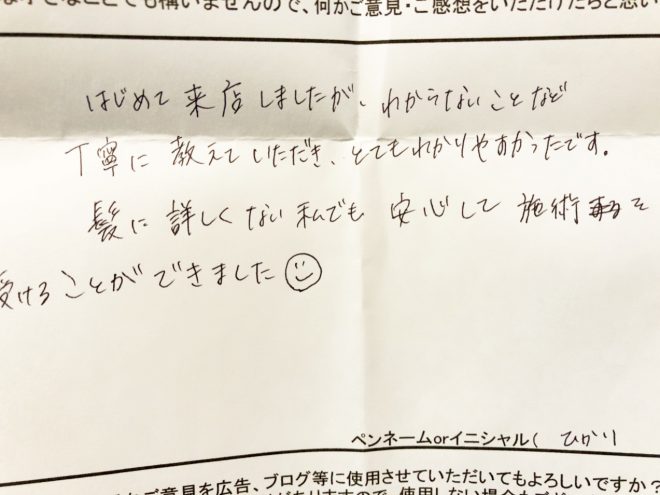 なことでも構いませんので、何かご意見・ご感想をいただけたらと思い
はじめて来店しましたが、わからないことなど
丁寧に教えていただき、とてもわかりやすかったです。
髪に詳しくない私でも安心して施術を
受けることができました
ペンネームorイニシャル( ひかり
ご意見を広告、ブログ等に使用させていただいてもよろしいですか?
がありますので、使用しない場合も